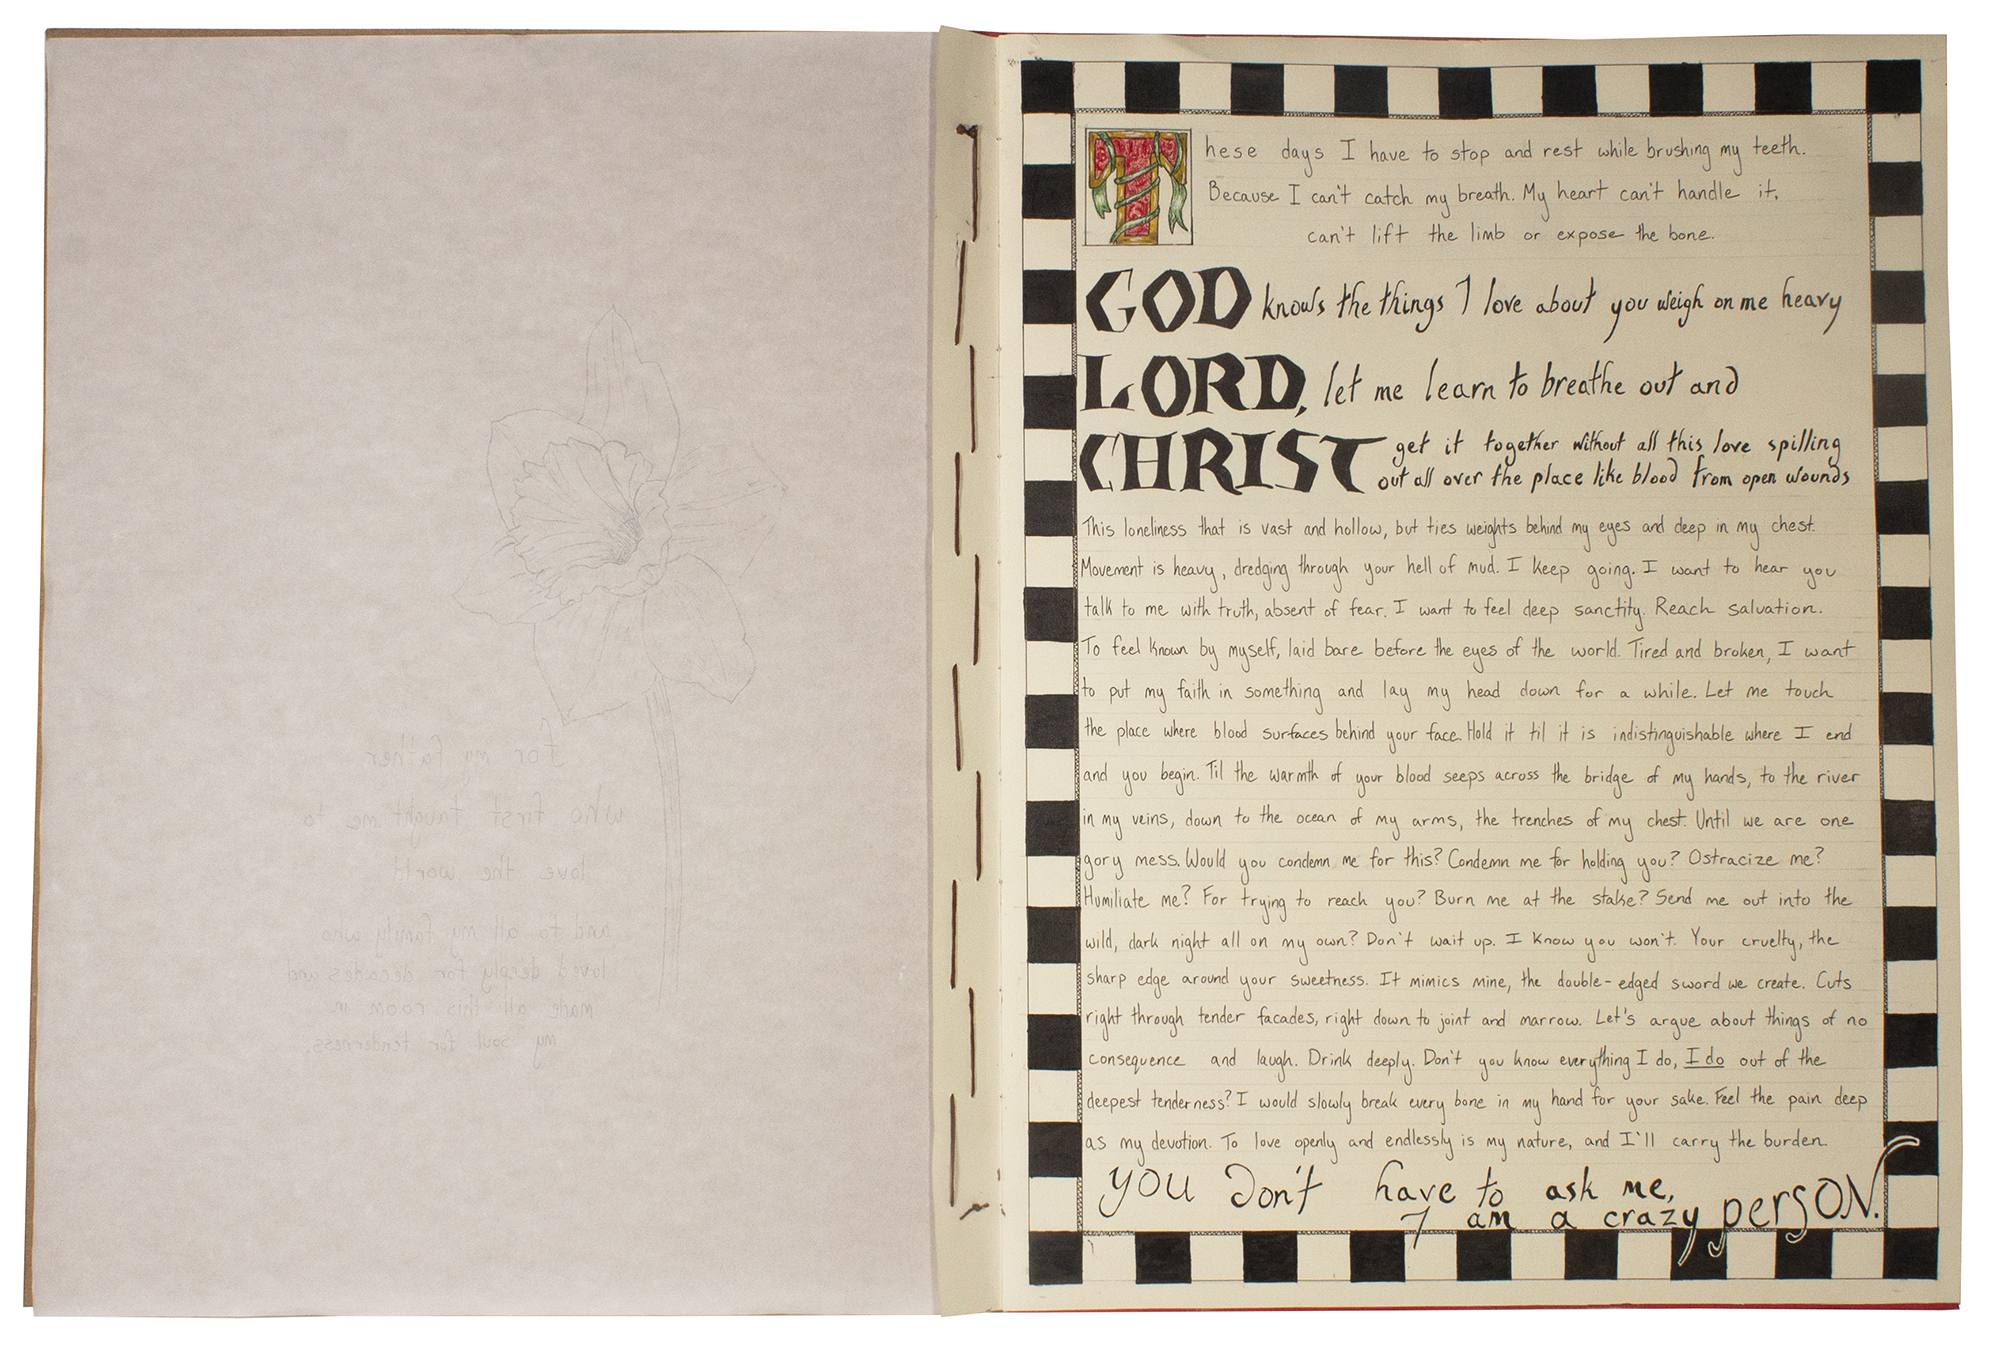 for my father
who first taught me to
love the world
and to all my family who
loved deeply for decades and
made all this room in
my soul for tenderness.
These days I have to stop and rest while brushing my teeth.
Because I can't catch my breath. My heart can't handle it,
can't lift the limb or expose the bone.
GOD knows the things I love about you weigh on me heavy
LORD, let me learn to breathe out and
CHRIST get it together without all this love spilling
out all over the place like blood from open wounds
This loneliness that is vast and hollow, but ties weights behind my eyes and deep in my chest.
Movement is heavy, dredging through your hell of mud. I keep going. I want to hear you
talk to me with truth, absent of fear. I want to feel deep sanctity. Reach salvation.
To feel known by myself, laid bare before the eyes of the world. Tired and broken, I want
to put my faith in something and lay my head down for a while. Let me touch
the place where blood surfaces behind your face. Hold it til it is indistinguishable where I end
and you begin. Til the warmth of your blood seeps across the bridge of my hands, to the river
in my veins, down to the ocean of my arms, the trenches of my chest. Until we are one
gory mess. Would you condemn me for this? Condemn me for holding you? Ostracize me?
Humiliate me? For trying to reach you? Burn me at the stake? Send me out into the
wild, dark night all on my own? Don't wait up. I know you won't. Your cruelty, the
sharp edge around your sweetness. It mimics mine, the double-edged sword we create. Cuts
right through tender facades, right down to joint and marrow. Let's argue about things of no
consequence and laugh. Drink deeply. Don't you know everything I do, I do out of the
deepest tenderness? I would slowly break every bone in my hand for your sake. Feel the pain deep
as my devotion. To love openly and endlessly is my nature, and I'll carry the burden.
YOU Don't have to ask me,
I am a crazy person.